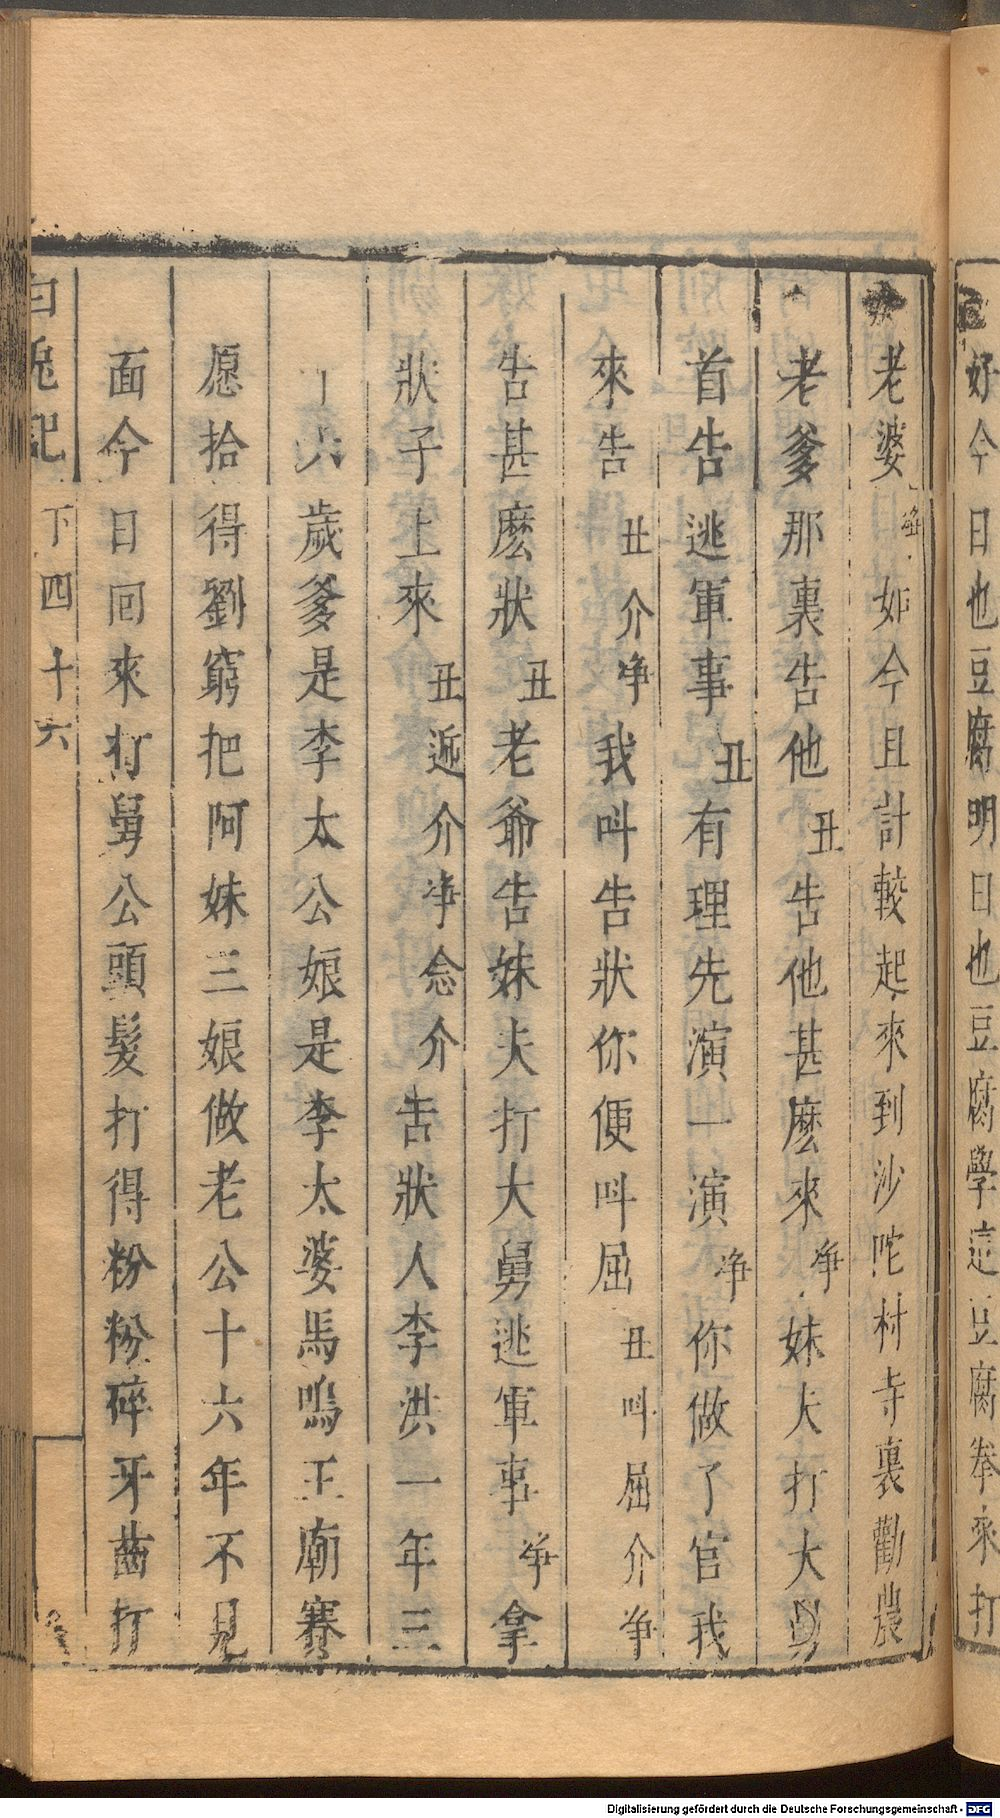 好今日也豆腐明日也豆腐學這豆腐拳來打
老婆淨如今且計較起來到沙陀村寺裏勸農
老爹那裏告他丑告他甚麽來淨妹夫打大舅
首告逃軍事丑有理先演一演淨你做了官我
來告丑介淨我呌告狀你便呌屈丑呌屈介淨
告甚麽狀丑老爺告妹夫打大舅逃軍事淨拿
狀子上來丑遞介淨念介告狀人李洪一年三
十六歲爹是李太公娘是李太婆馬鳴王廟賽
愿拾得劉窮把阿妹三娘做老公十六年不見
面今日囘來打舅公頭髮打得粉粉碎牙齒打
白兎記 下四十六
Digitalisierung gefördert durch die Deutsche Forschungsgemeinschaft - DFG